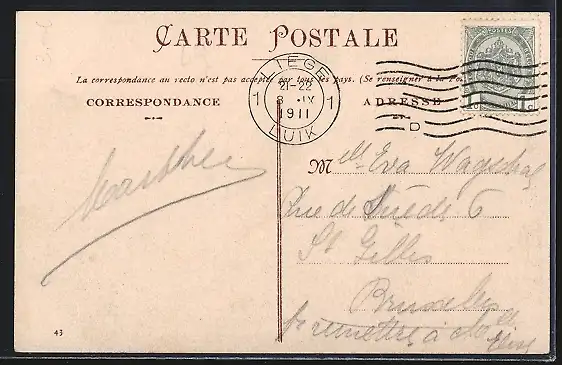 CARTE POSTALE
La correspondance au recto n'est pas acceptée par tous les pays. (Se renseigner à la Po
CORRESPONDANCE
ADRESSE
LIEGE
21-22
1 8 IX 1
1911
LUIK
D
1 c 1 c
Mlle Eva
Rue de Suède 6
St Gilles
Bruxelles
à remettre à Mlle
43